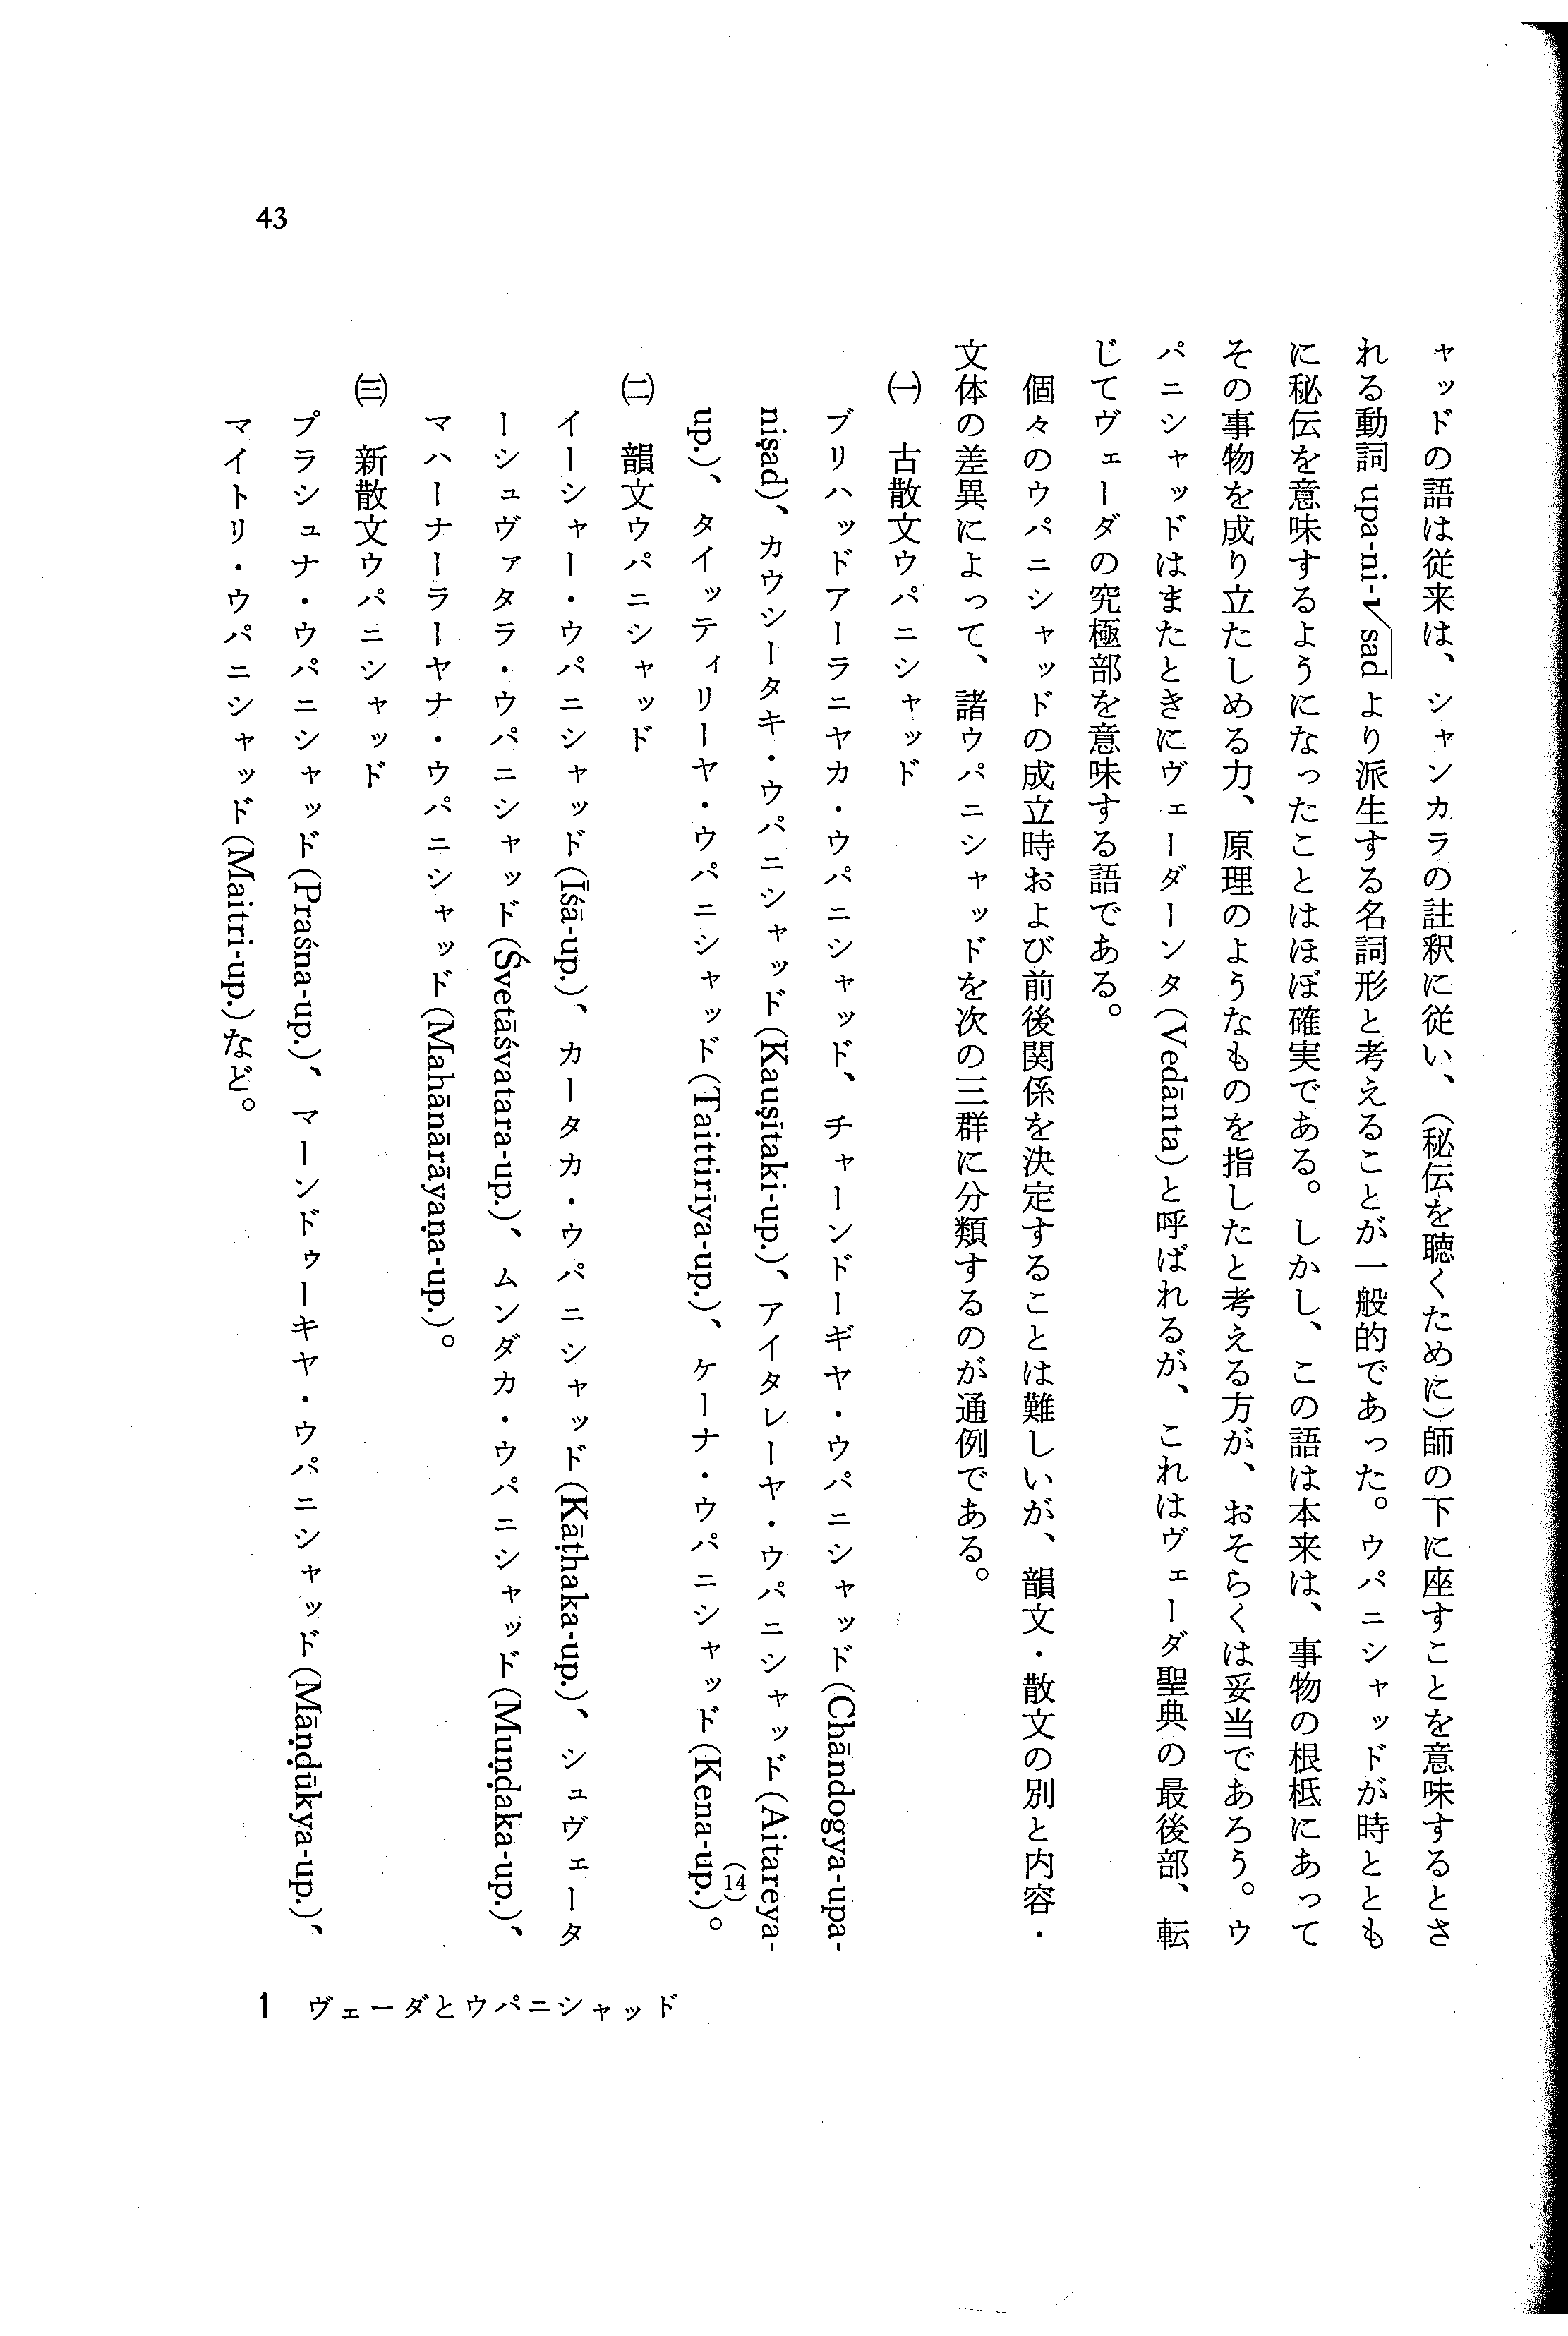 43
ャッドの語は従来は、シャンカラの註釈に従い、(秘伝を聴くために)師の下に座すことを意味するとさ
れる動詞 upa-ni-√sad より派生する名詞形と考えることが一般的であった。ウパニシャッドが時ととも
に秘伝を意味するようになったことはほぼ確実である。しかし、この語は本来は、事物の根柢にあって
その事物を成り立たしめる力、原理のようなものを指したと考える方が、おそらくは妥当であろう。ウ
パニシャッドはまたときにヴェーダーンタ(Vedānta)と呼ばれるが、これはヴェーダ聖典の最後部、転
じてヴェーダの究極部を意味する語である。
個々のウパニシャッドの成立時および前後関係を決定することは難しいが、韻文・散文の別と内容・
文体の差異によって、諸ウパニシャッドを次の三群に分類するのが通例である。
㈠ 古散文ウパニシャッド
ブリハッドアーラニヤカ・ウパニシャッド、チャーンドーギヤ・ウパニシャッド(Chāndogya-upa-
niṣad)、カウシータキ・ウパニシャッド(Kauṣītaki-up.)、アイタレーヤ・ウパニシャッド(Aitareya-
up.)、タイッティリーヤ・ウパニシャッド(Taittirīya-up.)、ケーナ・ウパニシャッド(Kena-up.)(14)。
㈡ 韻文ウパニシャッド
イーシャー・ウパニシャッド(Īśā-up.)、カータカ・ウパニシャッド(Kāṭhaka-up.)、シュヴェータ
ーシュヴァタラ・ウパニシャッド(Śvetāśvatara-up.)、ムンダカ・ウパニシャッド(Muṇḍaka-up.)、
マハーナーラーヤナ・ウパニシャッド(Mahānārāyaṇa-up.)。
㈢ 新散文ウパニシャッド
プラシュナ・ウパニシャッド(Praśna-up.)、マーンドゥーキヤ・ウパニシャッド(Māṇḍūkya-up.)、
マイトリ・ウパニシャッド(Maitri-up.)など。
1 ヴェーダとウパニシャッド